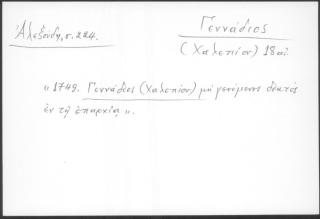 Ἀλεξούδη, σ. 224.
Γεννάδιος
(Χαλεπίου) 18 αἰ.
« 1749. Γεννάδιος (Χαλεπίου) μή γενόμενος δεκτός
ἐν τῇ ἐπαρχίᾳ ».